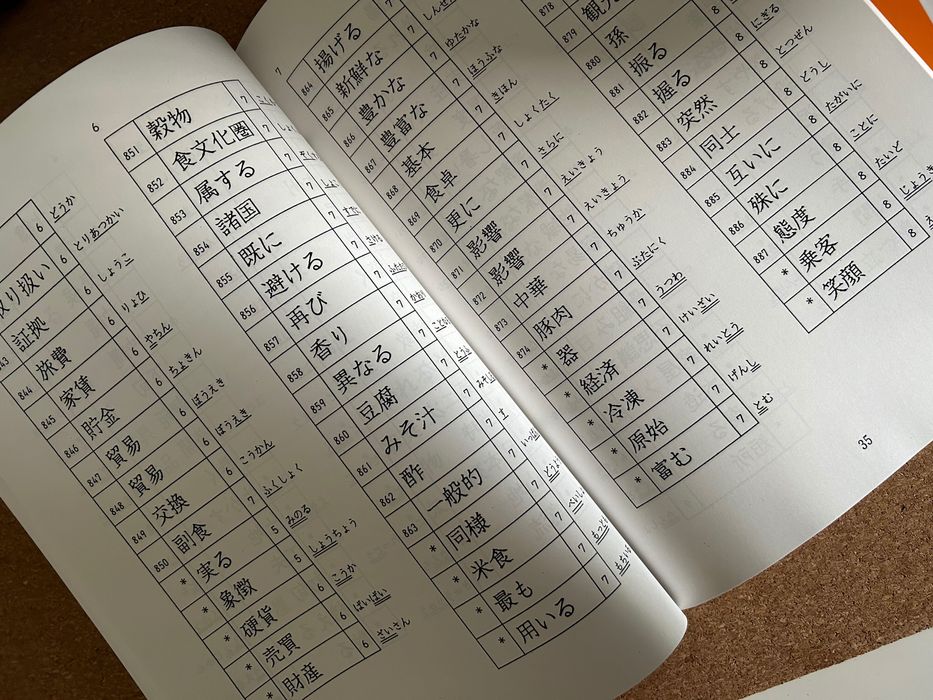 6
6 とうか
り扱い 6 とりあつかい
証拠 6 しょうこ
844 旅費 6 りょひ
845 家賃 6 やちん
846 貯金 6 ちょきん
847 貿易 6 ぼうえき
848 貿易 6 ぼうえき
849 交換 6 こうかん
850 副食 7 ふくしょく
* 実る 5 みのる
* 象徴 5 しょうちょう
* 硬貨 6 こうか
* 売買 6 ばいばい
* 財産 6 ざいさん
851 穀物 7
852 食文化圏 7
853 属する 7
854 諸国 7
855 既に 7
856 避ける 7
857 再び 7
858 香り 7
859 異なる 7
860 豆腐 7
861 みそ汁 7
862 酢 7 す
863 一般的 7
* 同様 7
* 米食 7
* 最も 7
* 用いる 7
7
864 揚げる 7
865 新鮮な 7
866 豊かな 7 ゆたかな
867 豊富な 7 ほうふな
868 基本 7 きほん
869 食卓 7 しょくたく
870 更に 7 さらに
871 影響 7 えいきょう
872 影響 7 えいきょう
873 中華 7 ちゅうか
874 豚肉 7 ぶたにく
* 器 7 うつわ
* 経済 7 けいざい
* 冷凍 7 れいとう
* 原始 7 げんし
* 富む 7 とむ
878
879
880 孫
881 振る
882 握る 8 にぎる
883 突然 8 とつぜん
884 同士 8 どうし
885 互いに 8 たがいに
886 殊に 8 ことに
887 態度 8 たいど
* 乗客 8
* 笑顔 8
35